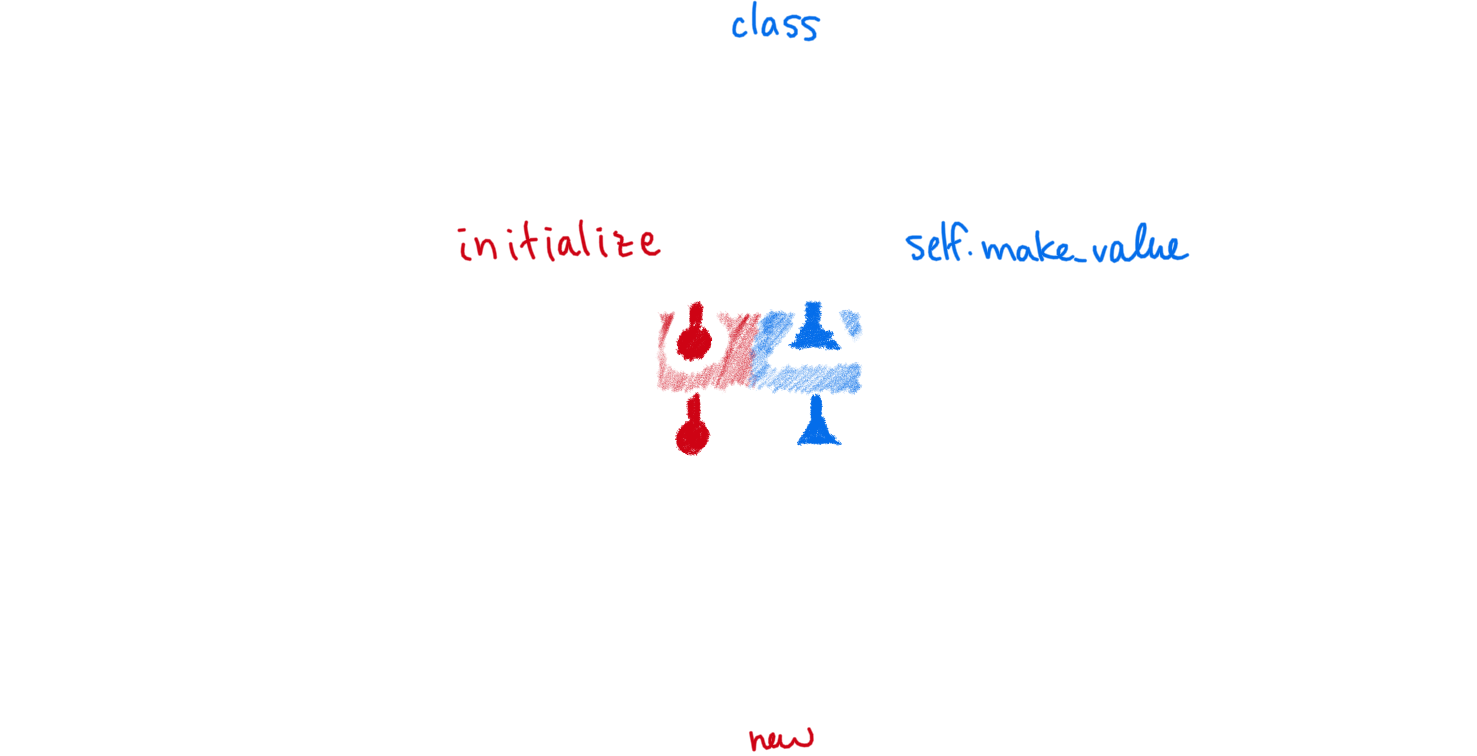 class
initialize
self.make_value
new